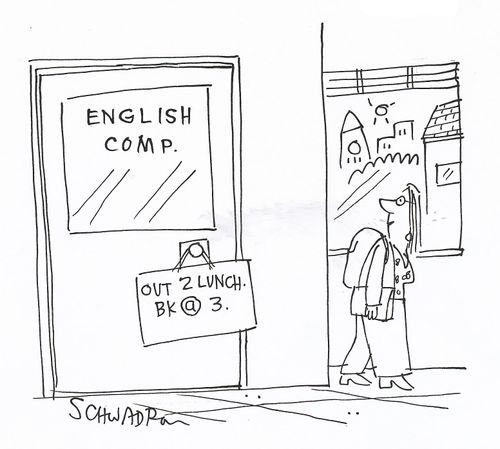 ENGLISH
COMP.
OUT 2 LUNCH.
BK @ 3.
SCHWADRON